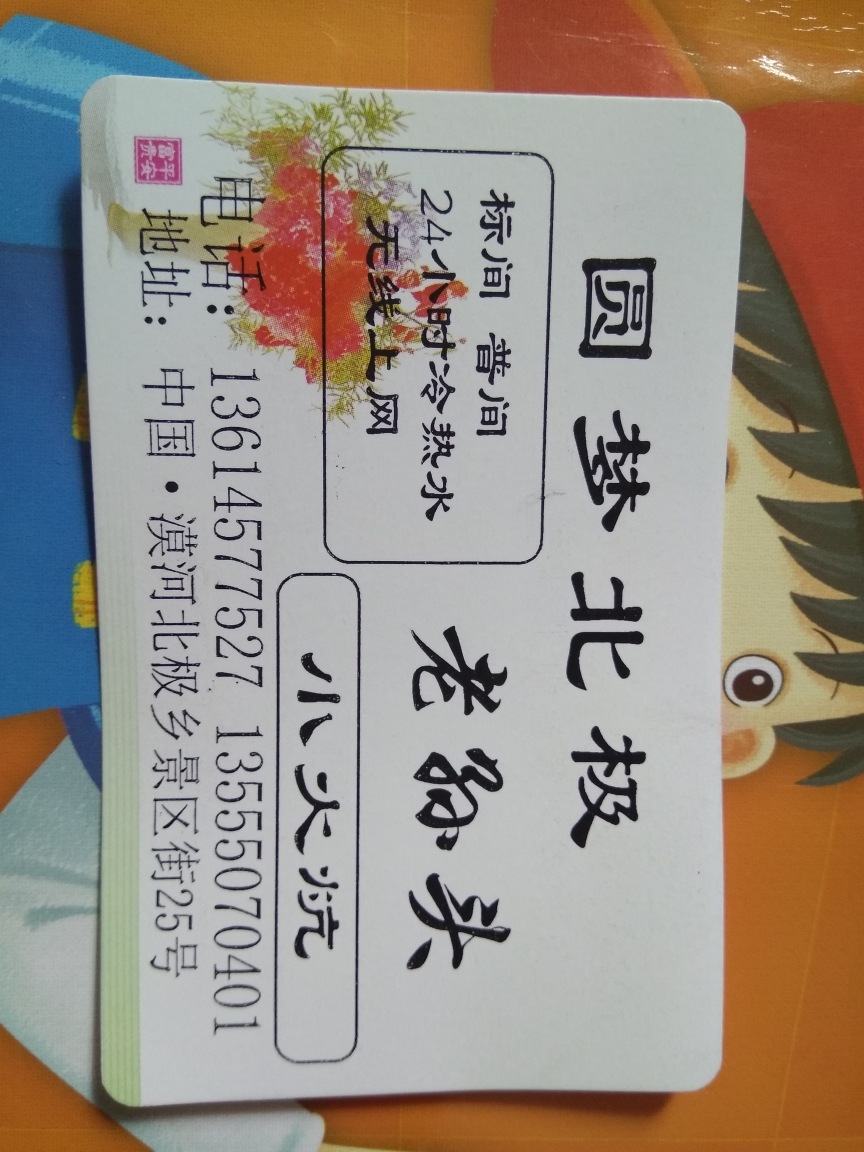 圆梦北极
标间 普间
24小时冷热水
无线上网
老孙头
小火炕
电话：13614577527 13555070401
地址：中国·漠河北极乡景区街25号
富贵平安